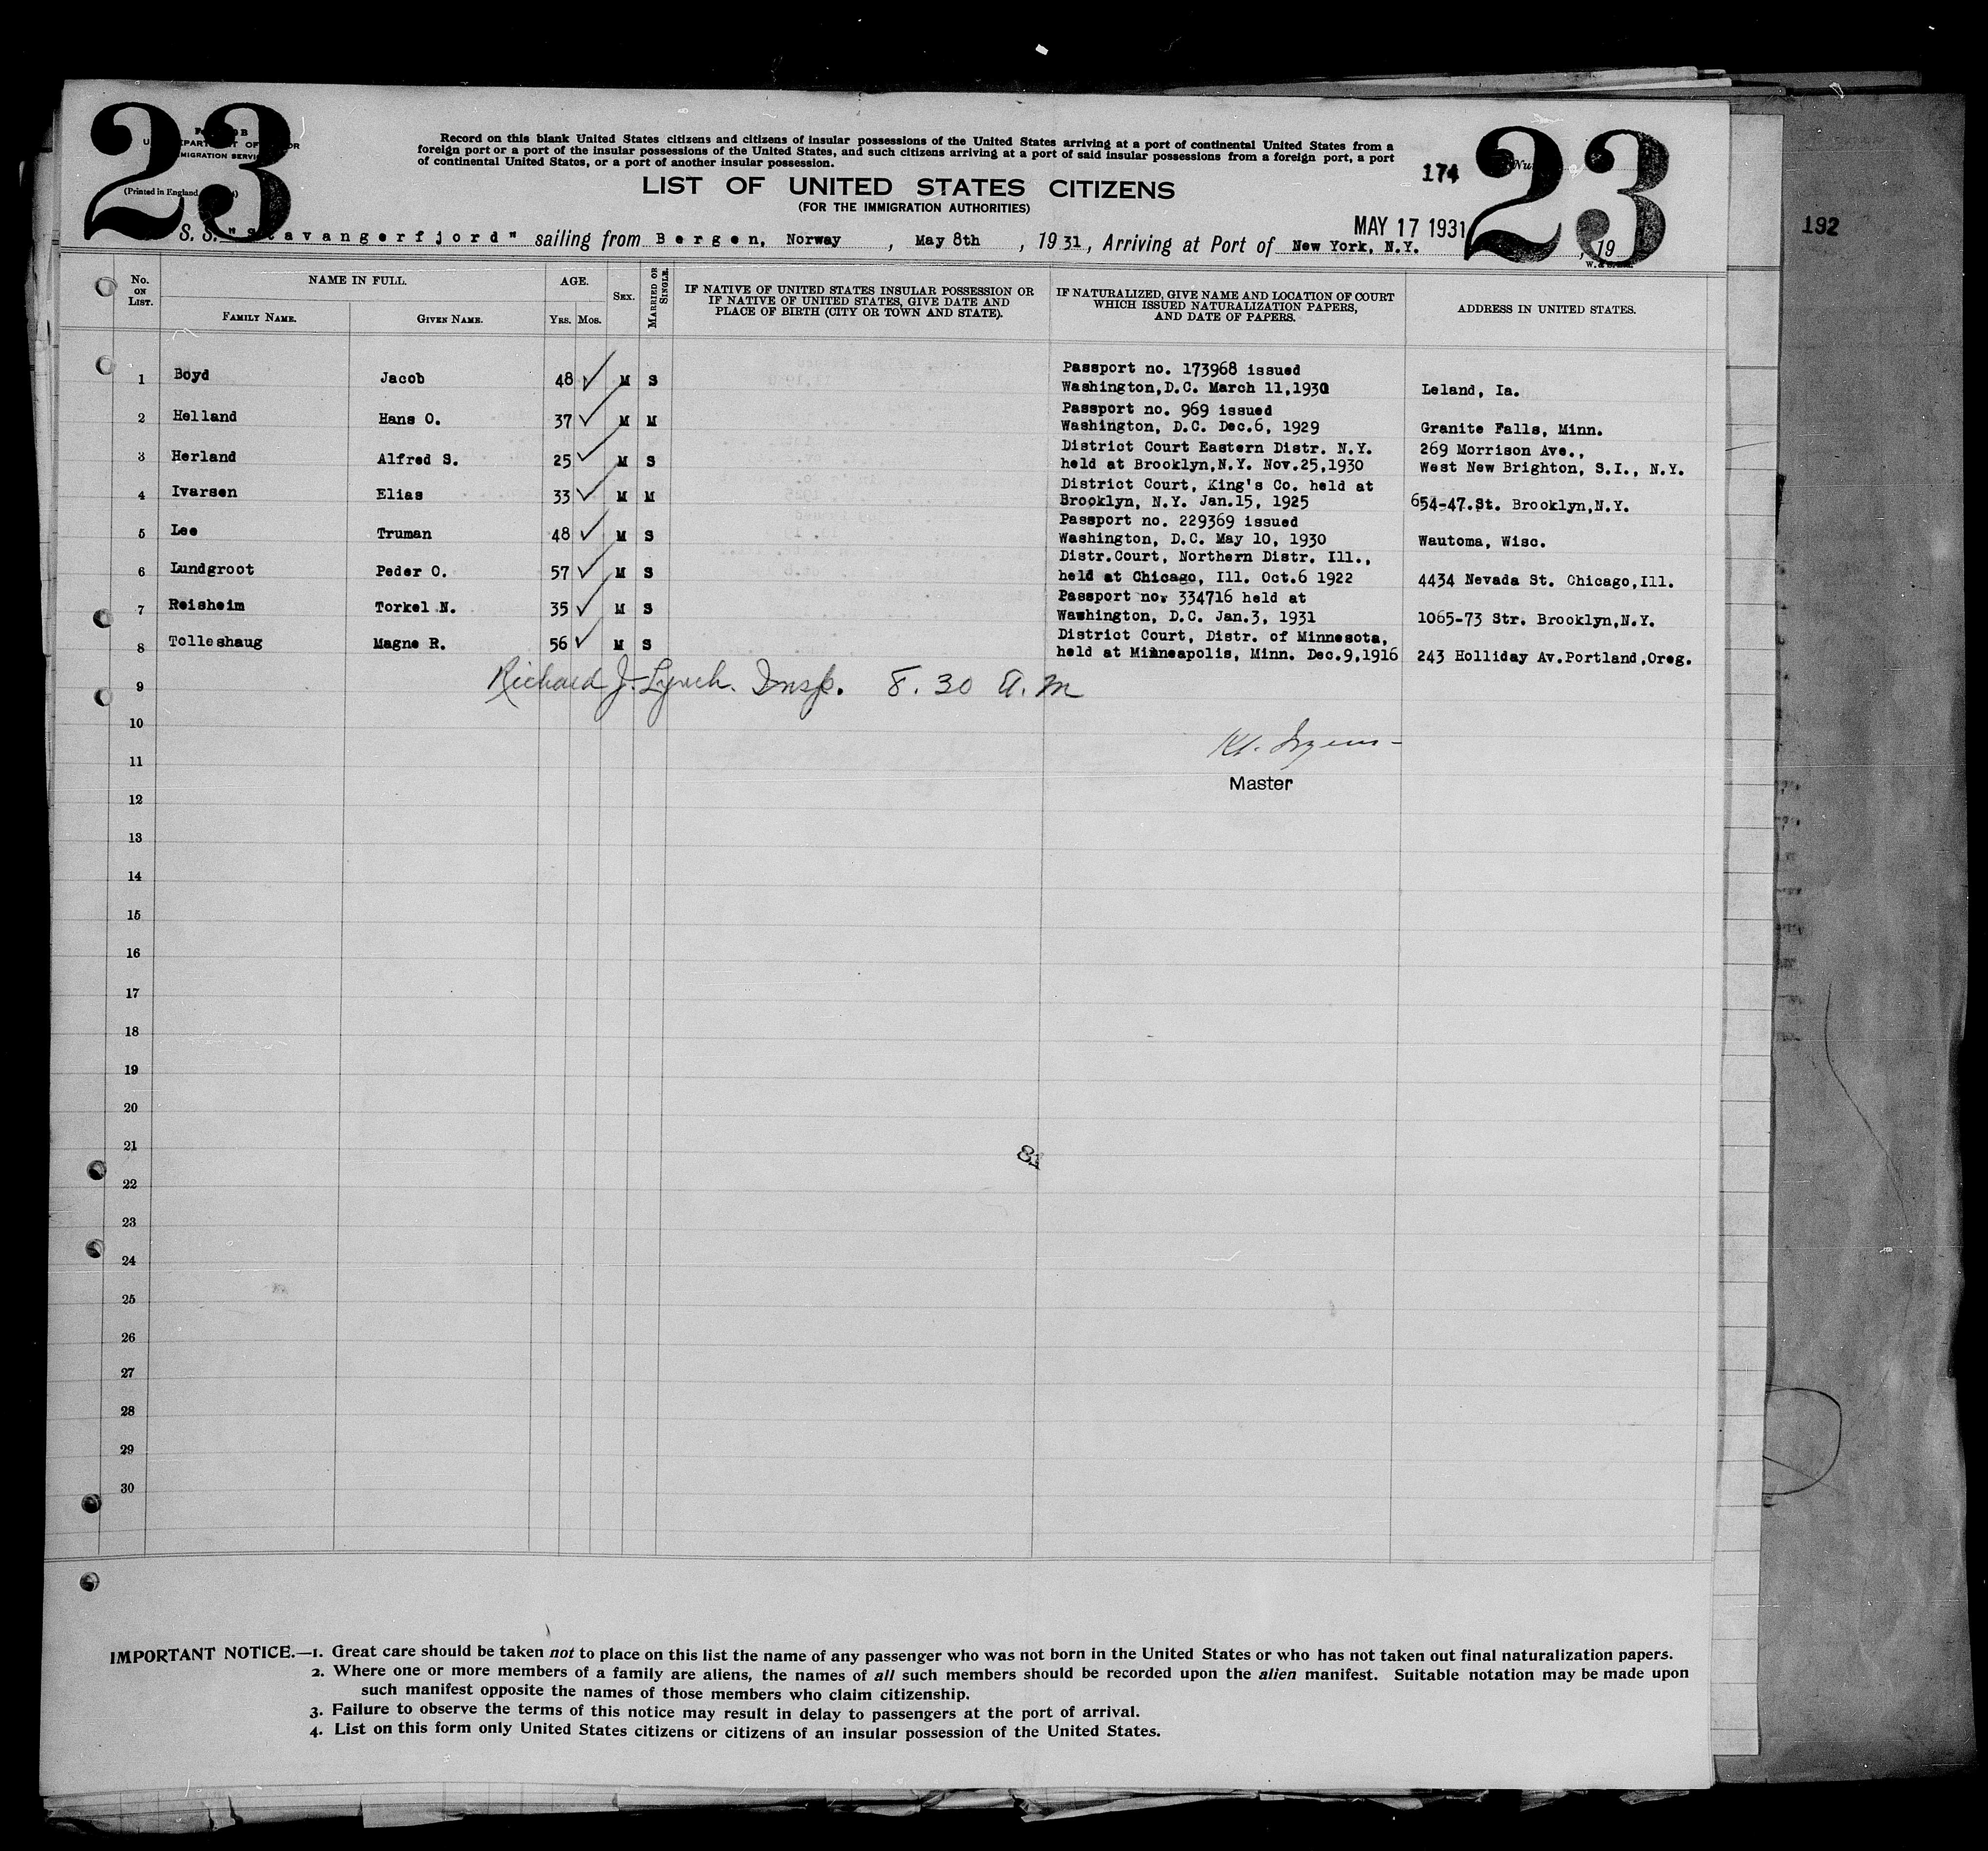 23
23
Record on this blank United States citizens and citizens of insular possessions of the United States arriving at a port of continental United States from a
foreign port or a port of the insular possessions of the United States, and such citizens arriving at a port of said insular possessions from a foreign port, a port
of continental United States, or a port of another insular possession.
(Printed in England
174
192
LIST OF UNITED STATES CITIZENS
(FOR THE IMMIGRATION AUTHORITIES)
MAY 17 1931
S. S. "Stavangerfjord" sailing from Bergen, Norway, May 8th, 1931, Arriving at Port of New York, N.Y. , 19
No. ON LIST.
NAME IN FULL.
FAMILY NAME. GIVEN NAME.
AGE.
YRS. MOS.
SEX.
MARRIED OR SINGLE.
IF NATIVE OF UNITED STATES INSULAR POSSESSION OR
IF NATIVE OF UNITED STATES, GIVE DATE AND
PLACE OF BIRTH (CITY OR TOWN AND STATE).
IF NATURALIZED, GIVE NAME AND LOCATION OF COURT
WHICH ISSUED NATURALIZATION PAPERS,
AND DATE OF PAPERS.
ADDRESS IN UNITED STATES.
Passport no. 173968 issued
1 Boyd Jacob 48 ✓ M S Washington,D.C. March 11,1930 Leland, Ia.
Passport no. 969 issued
2 Helland Hans O. 37 ✓ M M Washington, D.C. Dec.6, 1929 Granite Falls, Minn.
District Court Eastern Distr. N.Y. 269 Morrison Ave.,
3 Herland Alfred S. 25 ✓ M S held at Brooklyn,N.Y. Nov.25,1930 West New Brighton, S.I., N.Y.
District Court, King's Co. held at
4 Ivarsen Elias 33 ✓ M M Brooklyn, N.Y. Jan.15, 1925 654-47.St. Brooklyn,N.Y.
Passport no. 229369 issued
5 Lee Truman 48 ✓ M S Washington, D.C. May 10, 1930 Wautoma, Wisc.
Distr.Court, Northern Distr. Ill.,
6 Lundgroot Peder O. 57 ✓ M S held at Chicago, Ill. Oct.6 1922 4434 Nevada St. Chicago,Ill.
Passport no. 334716 held at
7 Reisheim Torkel N. 35 ✓ M S Washington, D.C. Jan.3, 1931 1065-73 Str. Brooklyn,N.Y.
District Court, Distr. of Minnesota,
8 Tolleshaug Magne R. 56 ✓ M S held at Minneapolis, Minn. Dec.9,1916 243 Holliday Av.Portland,Oreg.
9 Richard J. Lynch. Insp. 8.30 A.M
10
11
Master
12
13
14
15
16
17
18
19
20
21
81
22
23
24
25
26
27
28
29
30
IMPORTANT NOTICE.—1. Great care should be taken not to place on this list the name of any passenger who was not born in the United States or who has not taken out final naturalization papers.
2. Where one or more members of a family are aliens, the names of all such members should be recorded upon the alien manifest. Suitable notation may be made upon
such manifest opposite the names of those members who claim citizenship.
3. Failure to observe the terms of this notice may result in delay to passengers at the port of arrival.
4. List on this form only United States citizens or citizens of an insular possession of the United States.